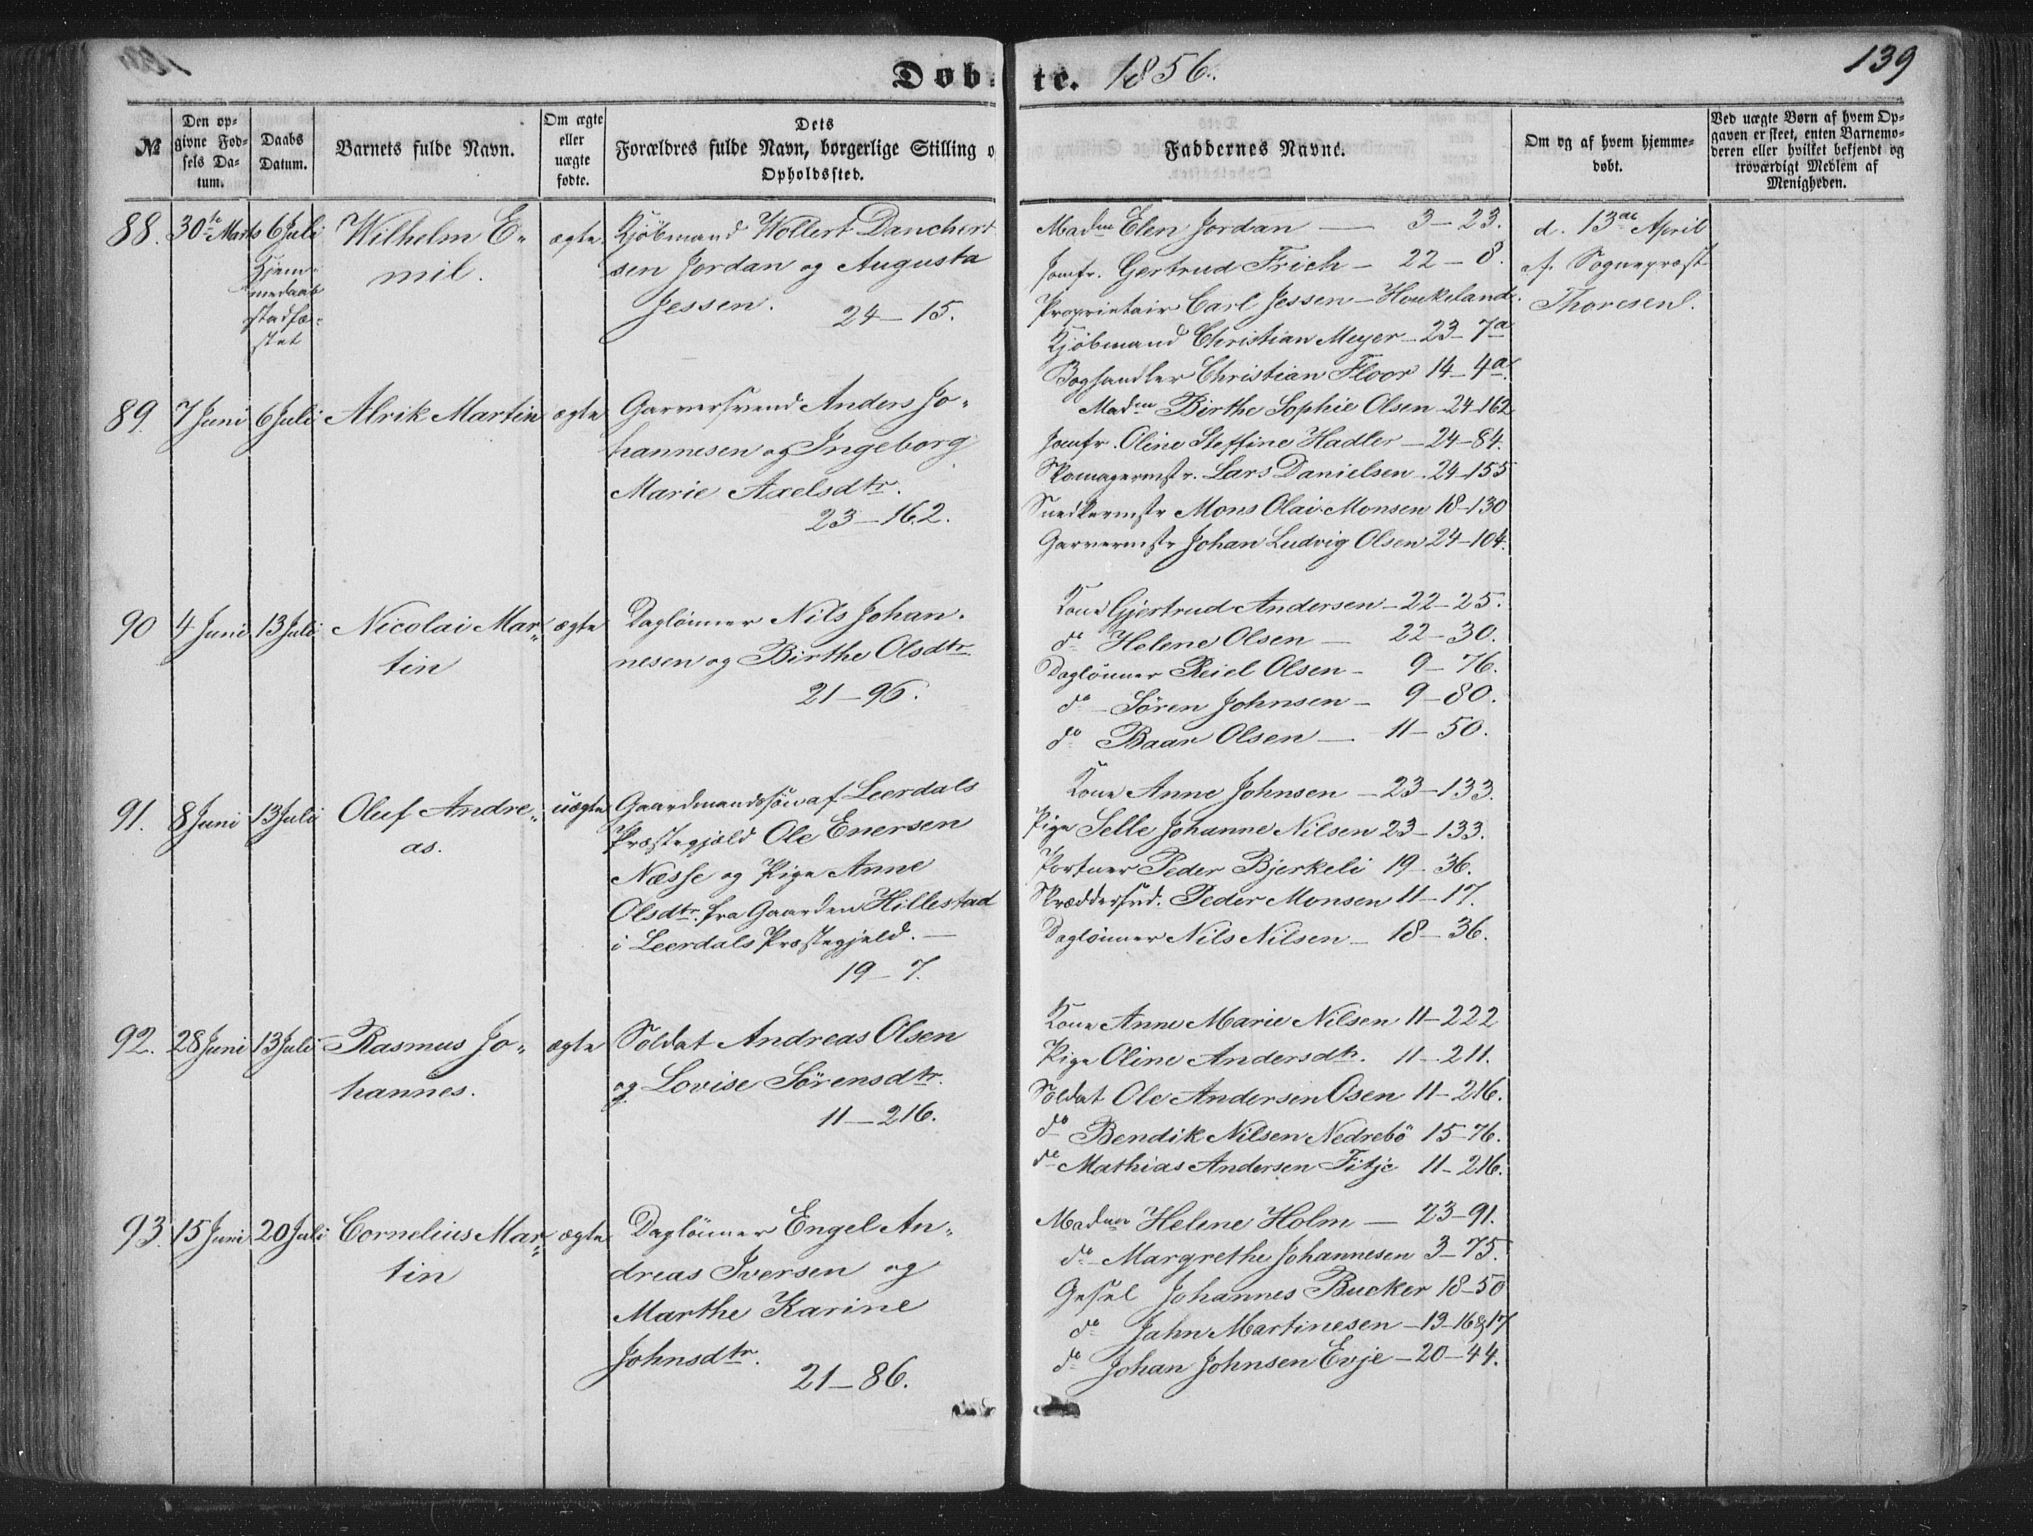 Døbte. 1856.
139
№
Den op-
givne Fød-
sels Da-
tum.
Daabs
Datum.
Barnets fulde Navn.
Om ægte
eller
uægte
fødte.
Dets
Forældres fulde Navn, borgerlige Stilling o
Opholdssted.
Faddernes Navne.
Om og af hvem hjemme-
døbt.
Ved uægte Børn af hvem Op-
gaven er skeet, enten Barnemo-
deren eller hvilket bekjendt og
troværdigt Medlem af
Menigheden.
88. 30te Marts 6 Juli Wilhelm E- ægte Kjøbmand Wollert Danchert
Hjem-
medaab
stadfæ-
stet
mil.
sen Jordan og Augusta
Jessen. 24-15.
Madm Elen Jordan — 3-23.
Jomfr. Gertrud Frich - 22-8.
Proprietair Carl Jessen - Houkeland.
Kjøbmand Christian Meyer - 23-7a
Boghandler Christian Floor 14-4a.
d. 13de April
af Sognepræst
Thoresen.
89. 7 Juni 6 Juli Alrik Martin ægte Garversvend Anders Jo-
hannesen og Ingeborg
Marie Axelsdtr.
23-162.
Madm Birthe Sophie Olsen 24-162
Jomfr. Oline Steffine Hadler - 24-84.
Skomagermstr. Lars Danielsen. 24-155
Snedkermstr Mons Olai Monsen 18-130
Garvermstr Johan Ludvig Olsen 24-104.
90 4 Juni 13 Juli Nicolai Mar- ægte Daglønner Nils Johan-
tin
nesen og Birthe Olsdtr.
21-96.
Kone Gjertrud Andersen - 22-25.
do Helene Olsen — 22-30.
Daglønner Reiel Olsen - 9-76.
do - Søren Johnsen - 9-80.
do Baar Olsen - 11-50.
91. 8 Juni 13 Juli Oluf Andre- uægte Gaardmandssøn af Leerdals
as.
Præstegjeld Ole Enersen
Næsse og Pige Anne
Olsdtr. fra Gaarden Hillestad
i Leerdals Præstegjeld. —
19-7.
Kone Anne Johnsen - 23-133.
Pige Selle Johanne Nilsen 23-133.
Portner Peder Bjerkeli 19-36.
Skræddersvd. Peder Monsen 11-17.
Daglønner Nils Nilsen - 18-36.
92. 28 Juni 13 Juli Rasmus Jo- ægte Soldat Andreas Olsen
hannes.
og Lovise Sørensdtr.
11-216.
Kone Anne Marie Nilsen 11-222
Pige Oline Andersdtr. 11-211.
Soldat Ole Andersen Osen 11-216.
do Bendik Nilsen Nedrebö 15-76.
do Mathias Andersen Fitje 11-216.
93. 15 Juni 20 Juli Cornelius Mar- ægte Daglønner Engel An-
tin
dreas Iversen og
Marthe Karine
Johnsdtr.
21-86.
Madm Helene Holm — 23-91.
do - Margrethe Johannesen 3-75.
Gesel Johannes Bucker 18-50
do Jahn Martinesen - 13-16&17
do Johan Johnsen Evje - 20-44.